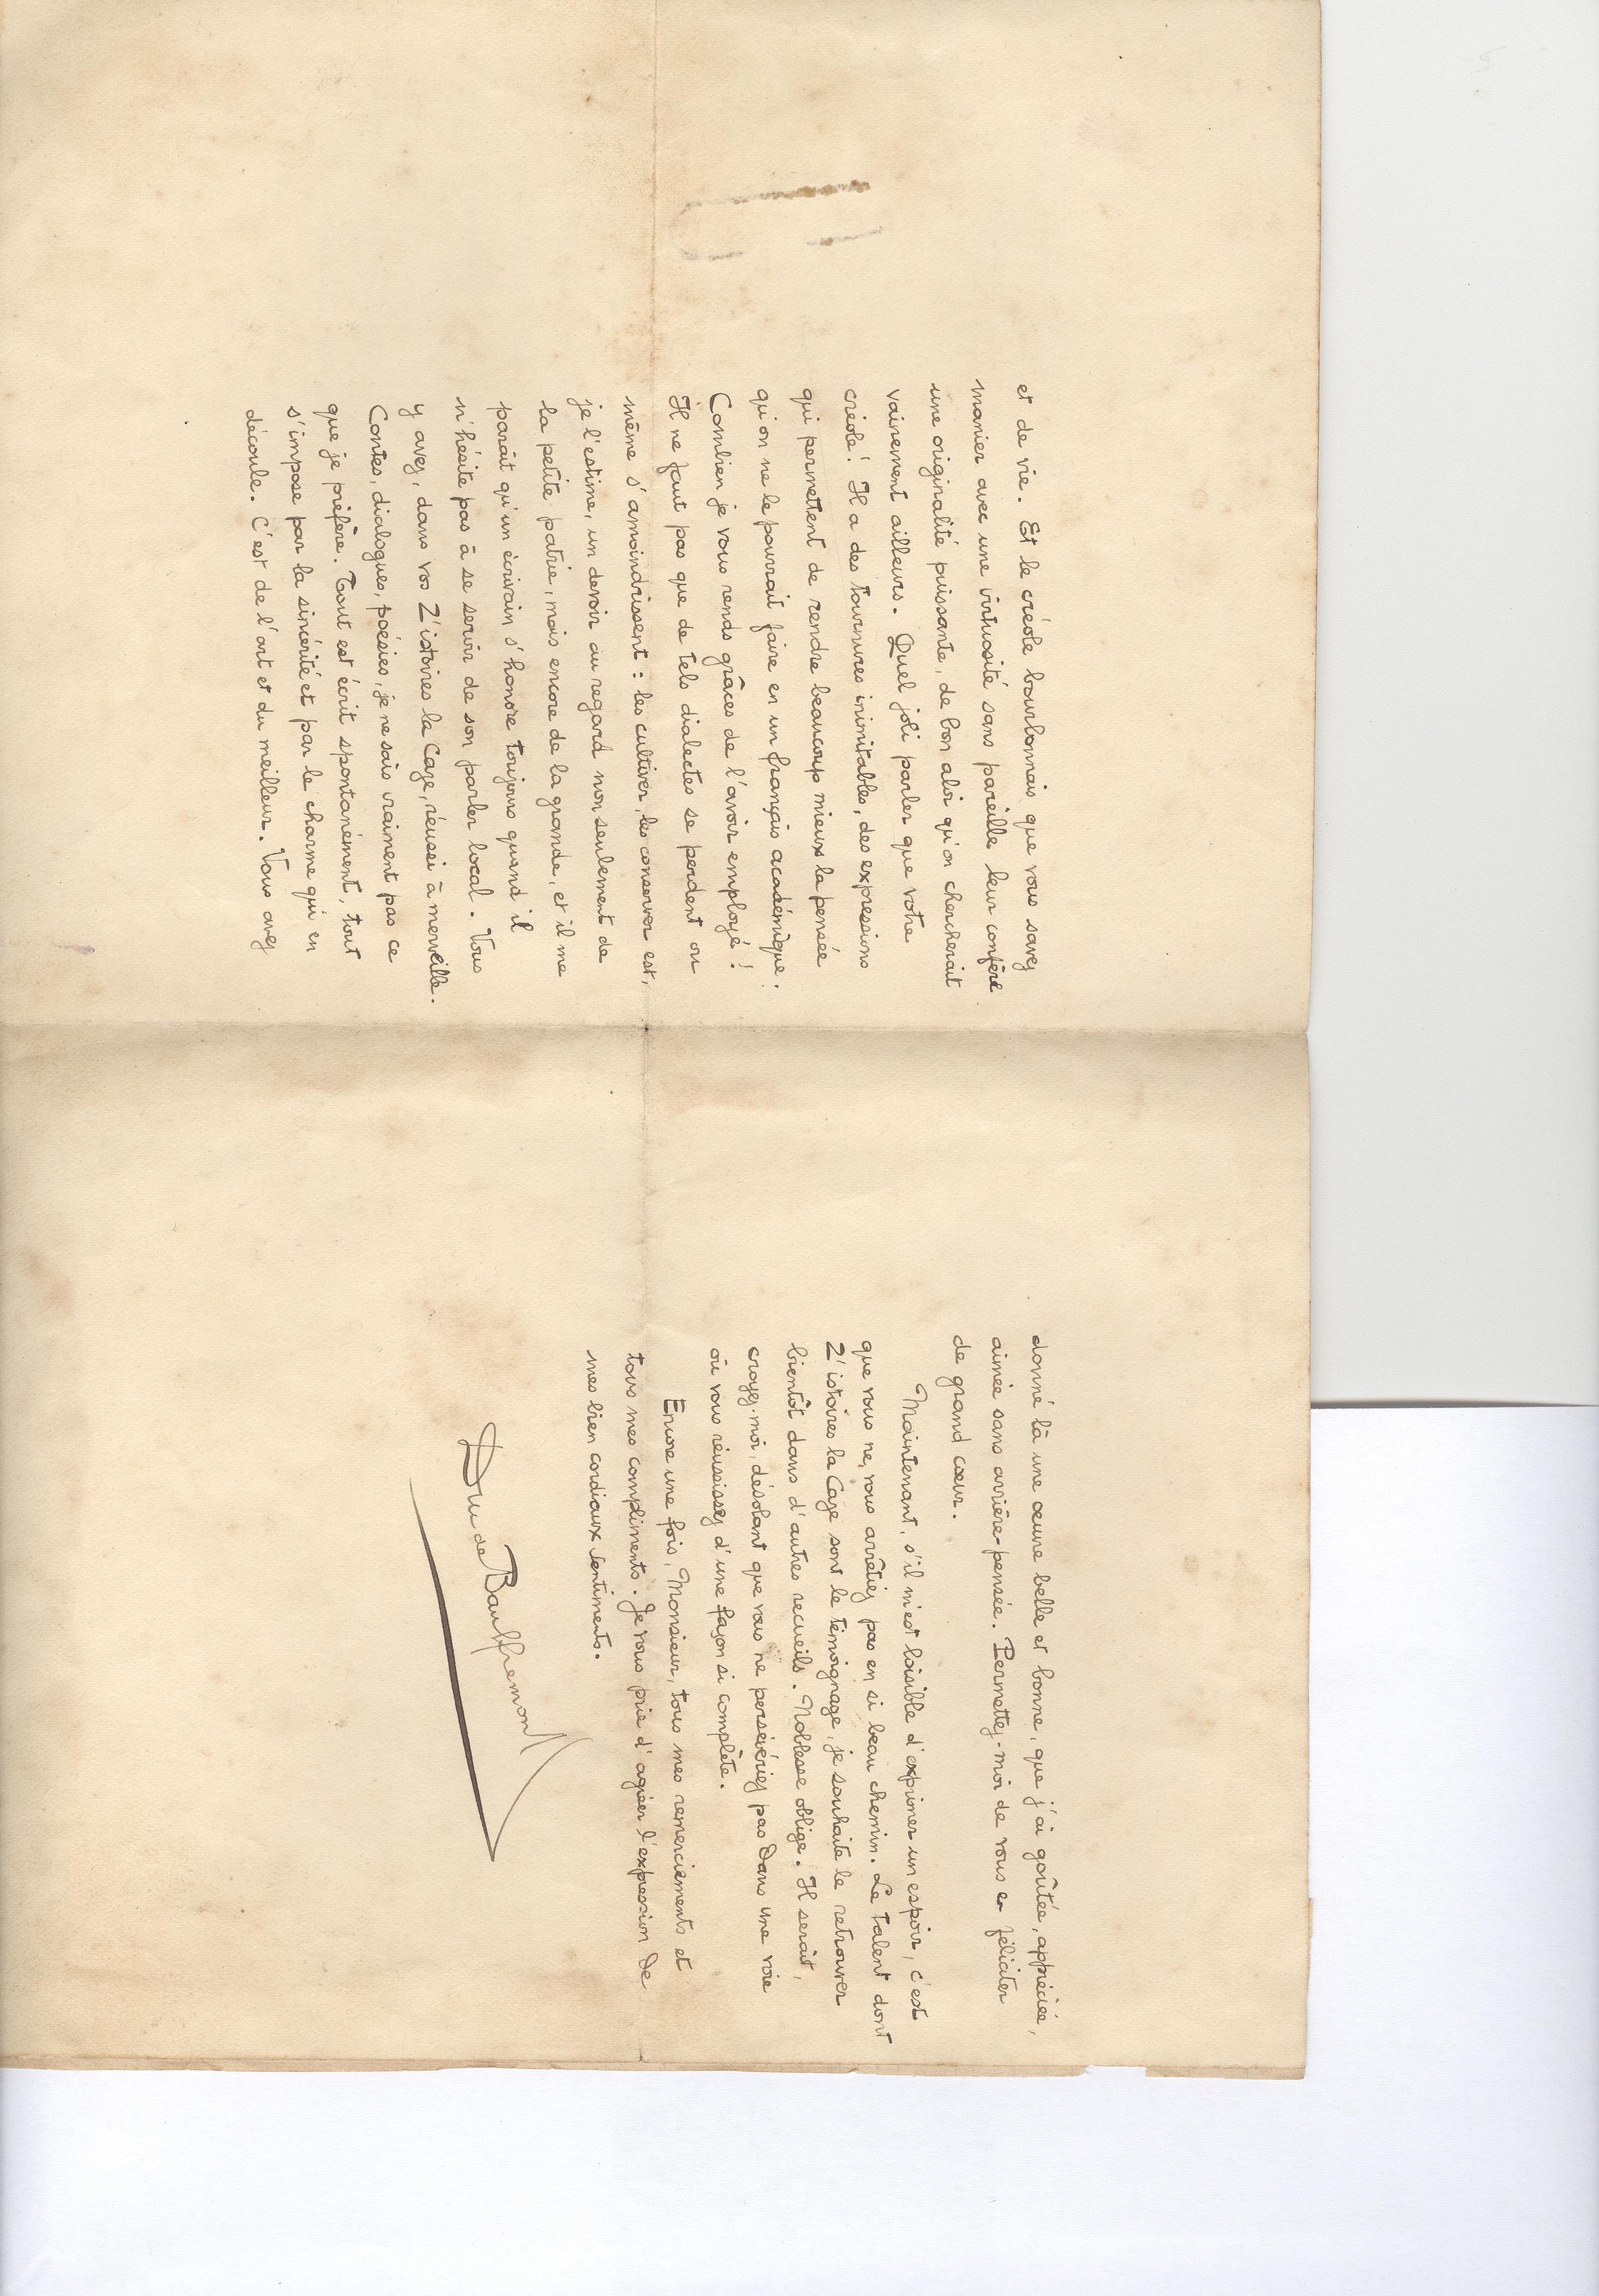 et de vie. Et le créole bourbonnais que vous savez
manier avec une virtuosité sans pareille leur confère
une originalité puissante, de bon aloi qu'on chercherait
vainement ailleurs. Quel joli parler que votre
créole! Il a des tournures inimitables, des expressions
qui permettent de rendre beaucoup mieux la pensée
qu'on ne le pourrait faire en un français académique.
Combien je vous rends grâces de l'avoir employé!
Il ne faut pas que de tels dialectes se perdent ou
même s'amoindrissent: les cultiver, les conserver est,
je l'estime, un devoir au regard non seulement de
la petite patrie, mais encore de la grande, et il me
paraît qu'un écrivain s'honore toujours quand il
n'hésite pas à se servir de son parler local. Vous
y avez, dans vos Z'istoires la Caze, réussi à merveille.
Contes, dialogues, poésies, je ne sais vraiment pas ce
que je préfère. Tout est écrit spontanément, tout
s'impose par la sincérité et par le charme qui en
découle. C'est de l'art et du meilleur. Vous avez
donné là une œuvre belle et bonne, que j'ai goûtée, appréciée,
aimée sans arrière-pensée. Permettez-moi de vous en féliciter
de grand cœur.
Maintenant, s'il m'est loisible d'exprimer un espoir, c'est
que vous ne vous arrêtiez pas en si beau chemin. Le talent dont
Z'istoires la Caze sont le témoignage, je souhaite le retrouver
bientôt dans d'autres recueils. Noblesse oblige. Il serait,
croyez-moi, désolant que vous ne persévériez pas dans une voie
où vous réussissez d'une façon si complète.
Encore une fois, Monsieur, tous mes remerciements et
tous mes compliments. Je vous prie d'agréer l'expression de
mes bien cordiaux sentiments.
Duc de Bauffremont